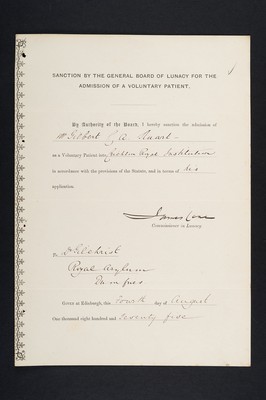 SANCTION BY THE GENERAL BOARD OF LUNACY FOR THE
ADMISSION OF A VOLUNTARY PATIENT.
By Authority of the Board, I hereby sanction the admission of
Mr Gilbert G. A. Stuart
as a Voluntary Patient into Crichton Royal Institution
in accordance with the provisions of the Statute, and in terms of his
application.
James Coxe
Commissioner in Lunacy.
To Dr Gilchrist
Royal Asylum
Dumfries
Given at Edinburgh, this fourth day of August
One thousand eight hundred and seventy five